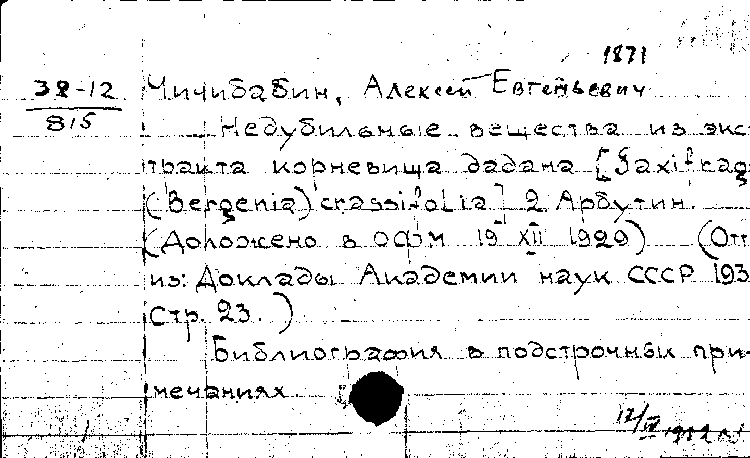 1871
38-12 Чичибабин, Алексей Евгеньевич
815
Недубильные вещества из экс
тракта корневища бадана [Saxifrag
(Bergenia) crassifolia] 2 Арбутин.
(Доложено в ОФМ 19 XII 1929) (Отт
из: Доклады Академии наук СССР 193
Стр. 23.)
Библиография в подстрочных при-
мечаниях
12/IV